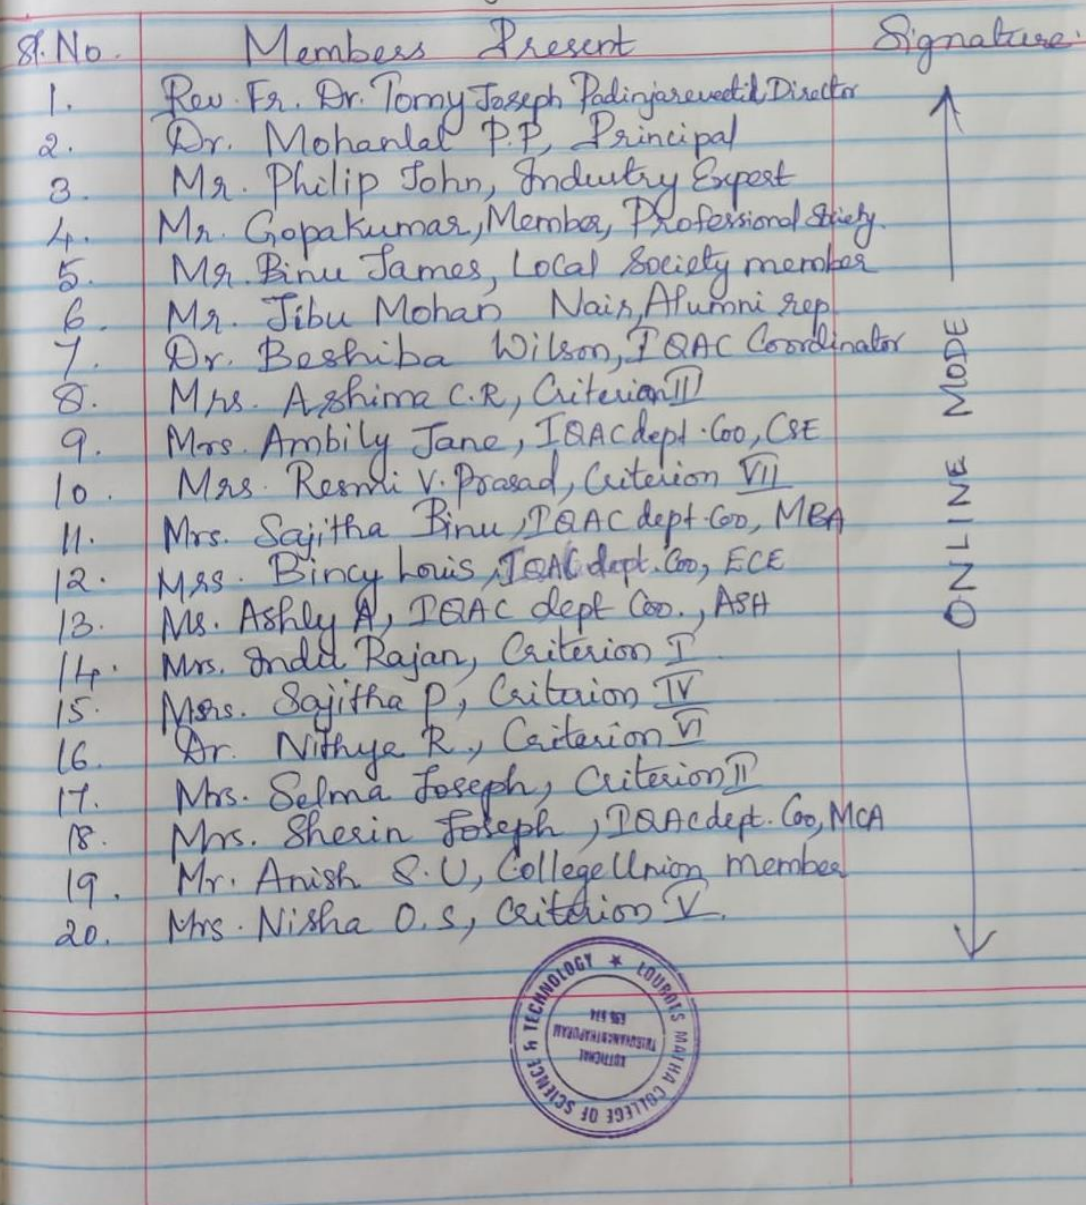 Sl. No. Members Present Signature
1. Rev. Fr. Dr. Tomy Joseph Padinjareveetil Director
2. Dr. Mohanlal P.P, Principal
3. Mr. Philip John, Industry Expert
4. Mr. Gopakumar, Member, Professional Society.
5. Mr. Binu James, Local Society member
6. Mr. Jibu Mohan Nair, Alumni rep
7. Dr. Beshiba Wilson, IQAC Coordinator
8. Mrs. Ashima C.R, Criterion III
9. Mrs. Ambily Jane, IQAC dept. Coo, CSE
10. Mrs. Resmi V. Prasad, Criterion VII
11. Mrs. Sajitha Binu, IQAC dept. Coo, MBA
12. Mrs. Bincy Louis, IQAC dept. Coo, ECE
13. Ms. Ashly A, IQAC dept Coo., ASH
14. Mrs. Indu Rajan, Criterion I
15. Mrs. Sajitha P, Criterion IV
16. Dr. Nithya R., Criterion VI
17. Mrs. Selma Joseph, Criterion II
18. Mrs. Sherin Joseph, IQAC dept. Coo, MCA
19. Mr. Anish S.U, College Union member
20. Mrs. Nisha O.S, Criterion V.
ONLINE MODE
LOURDES MATHA COLLEGE OF SCIENCE & TECHNOLOGY
KUTTICHAL
THIRUVANANTHAPURAM
695 574